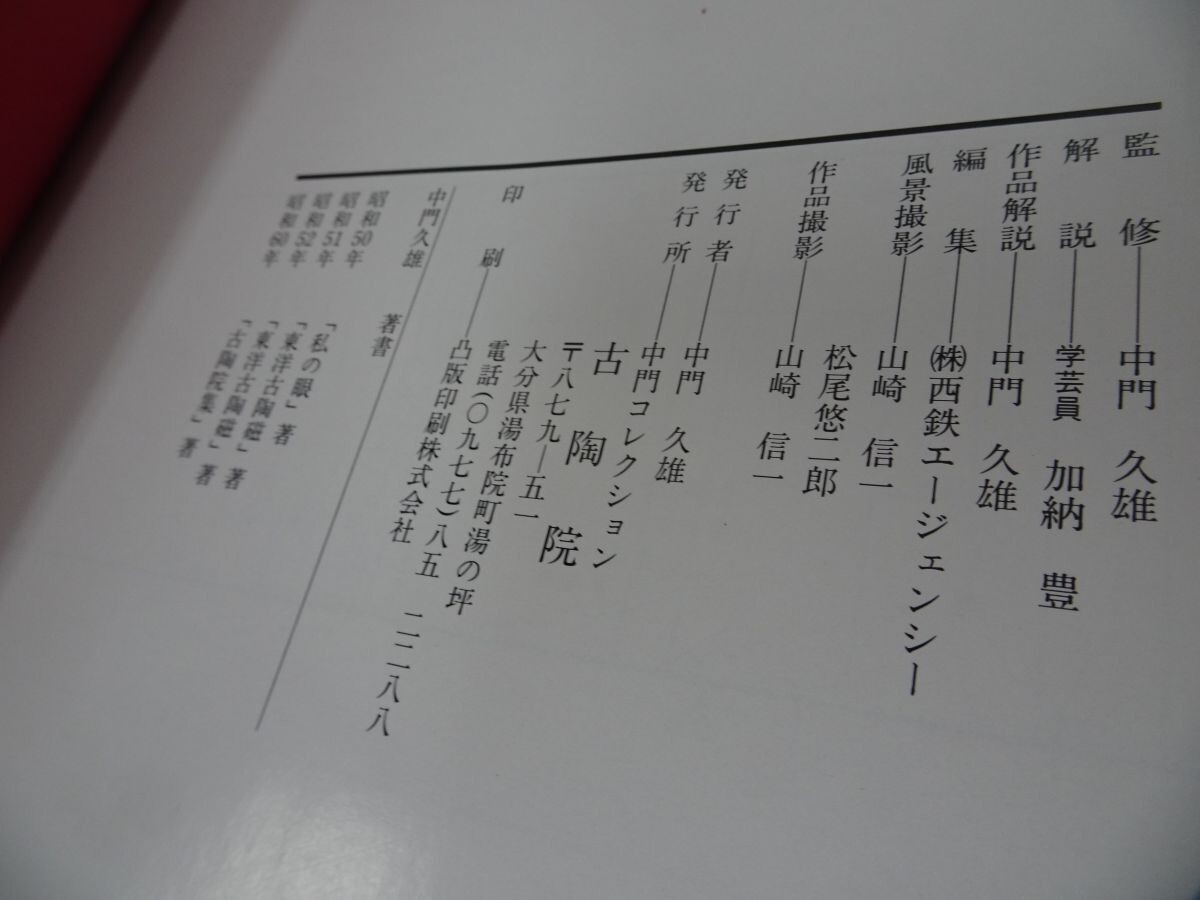 監修――中門 久雄
解説――学芸員 加納 豊
作品解説――中門 久雄
編集――㈱西鉄エージェンシー
風景撮影――山崎 信一
松尾悠二郎
作品撮影――山崎 信一
発行者――中門 久雄
発行所――中門コレクション
古陶院
〒八七九―五一
大分県湯布院町湯の坪
電話(〇九七七)八五 二二八八
印刷――凸版印刷株式会社
中門久雄 著書
昭和50年 「私の眼」著
昭和51年 「東洋古陶磁」著
昭和52年 「東洋古陶磁」著
昭和60年 「古陶院集」著